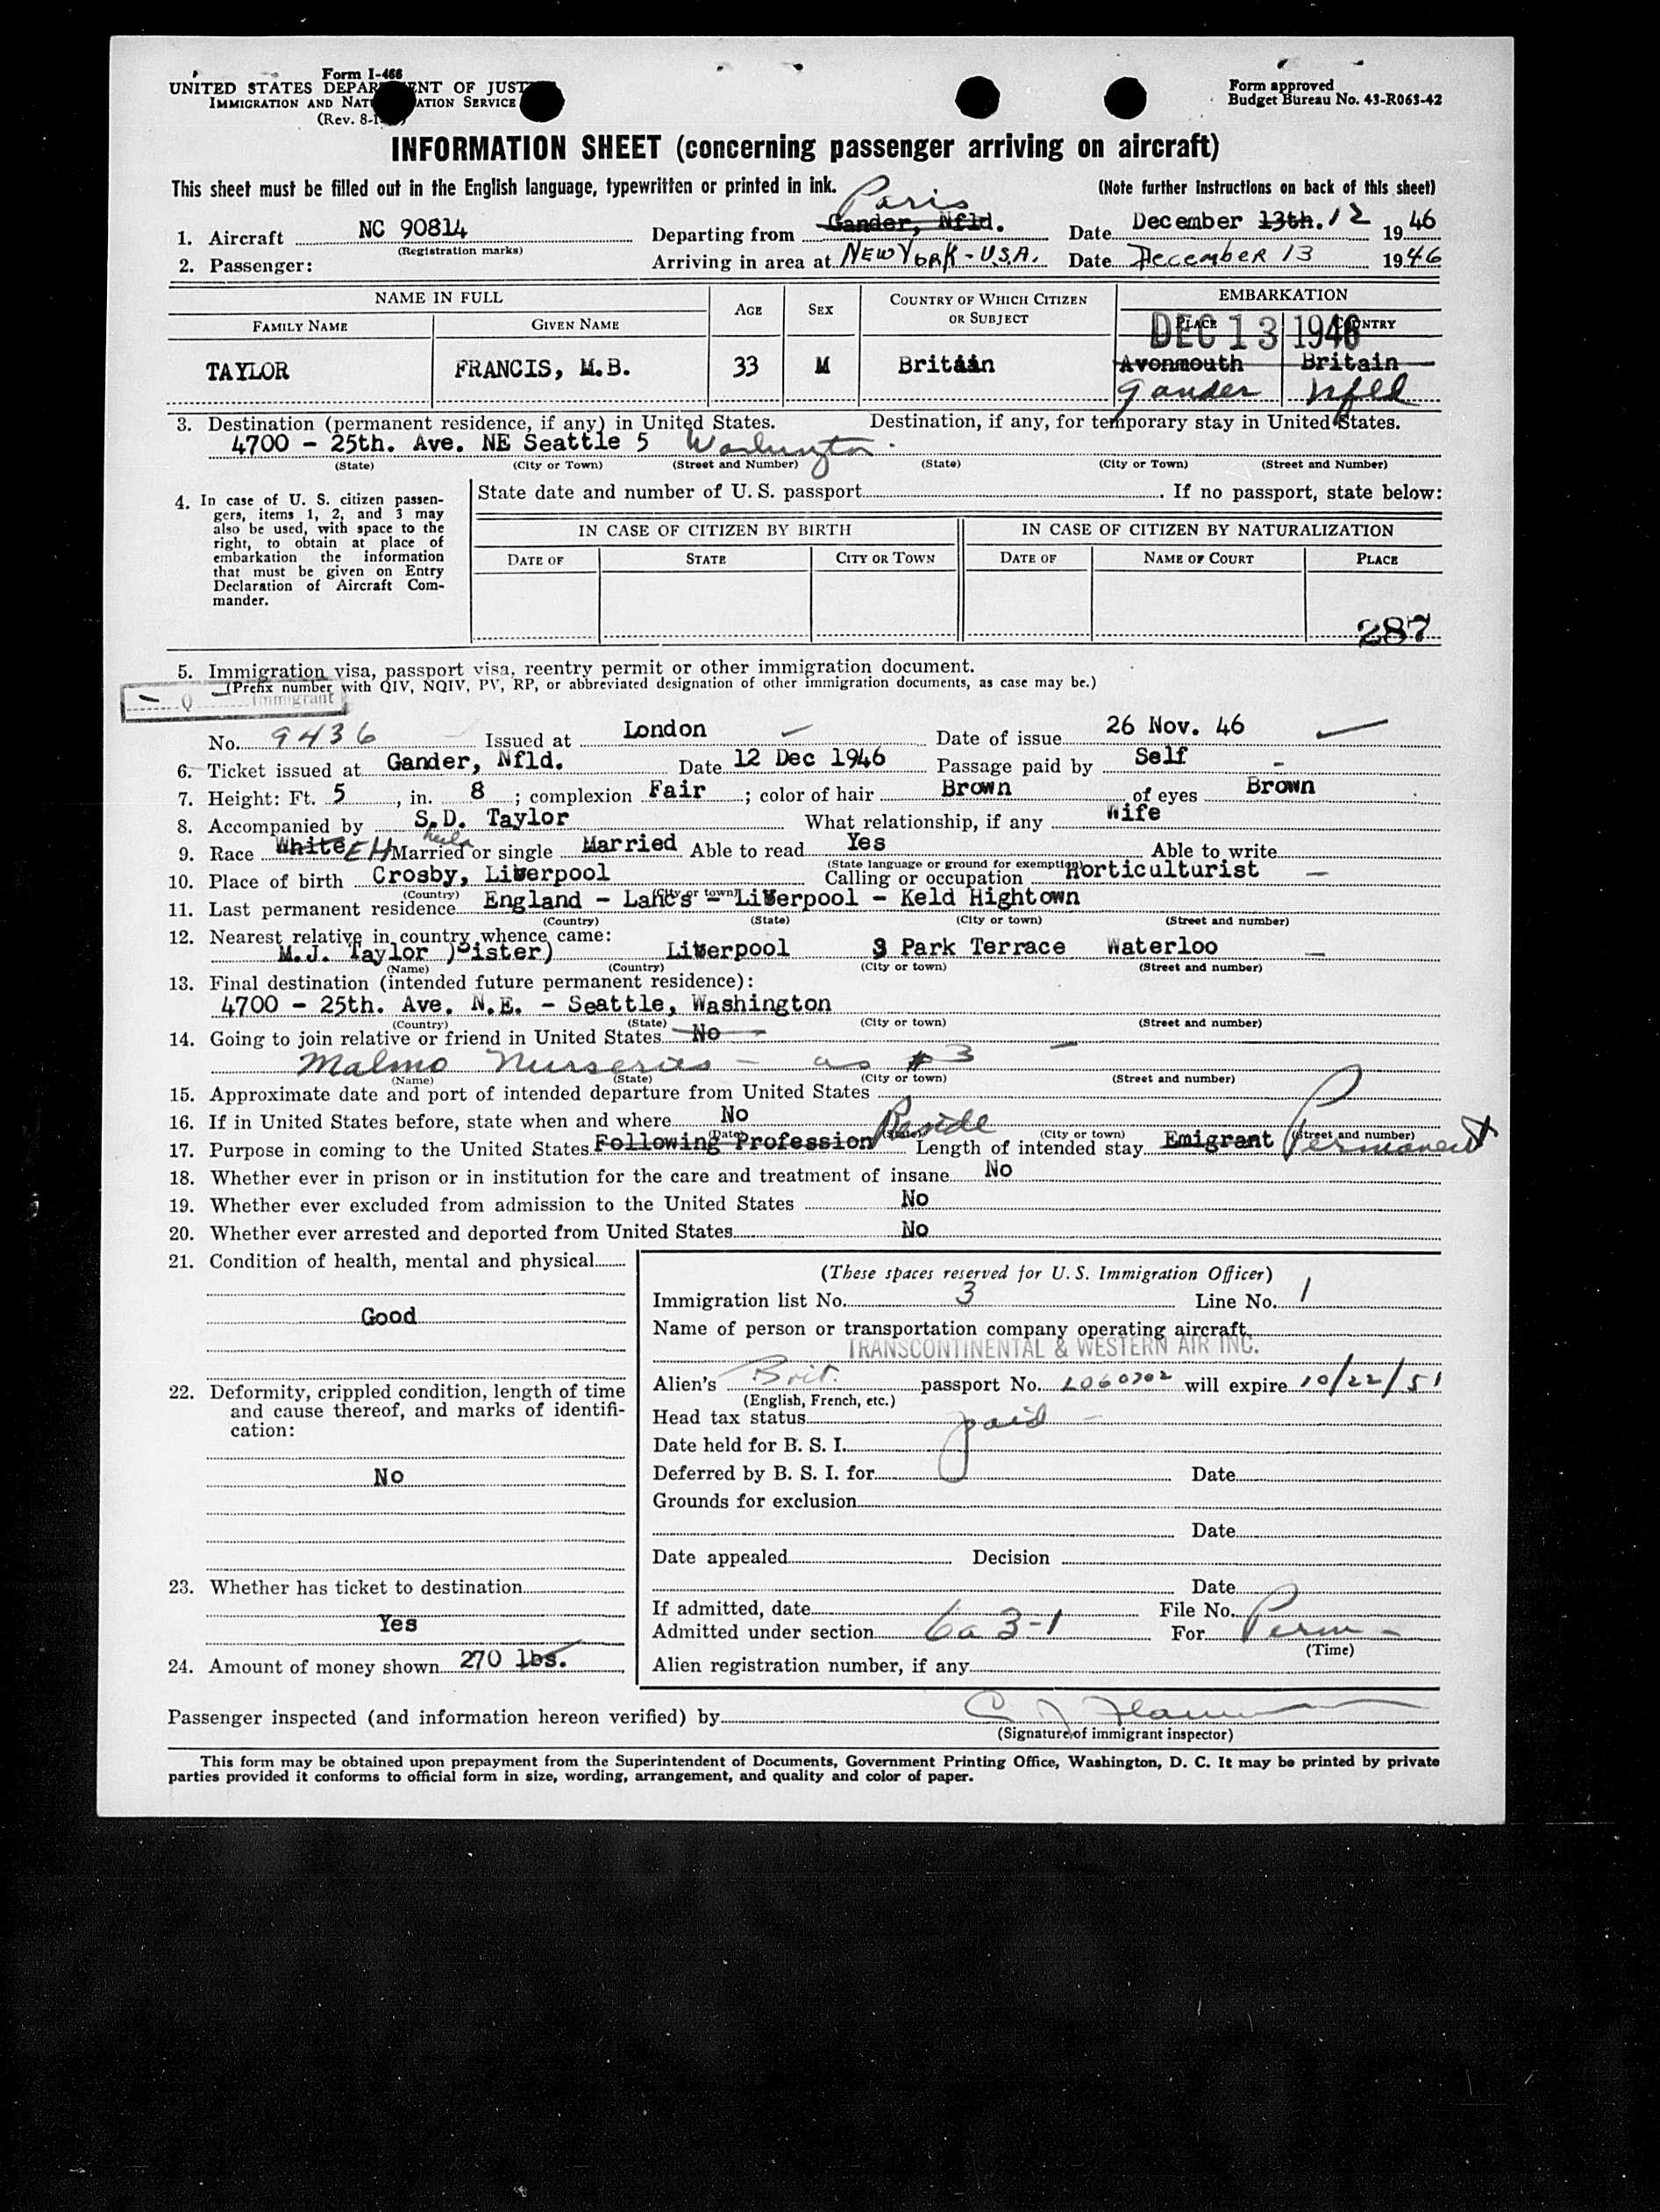 Form I-466
UNITED STATES DEPARTMENT OF JUSTICE
IMMIGRATION AND NATURALIZATION SERVICE
(Rev. 8-1
Form approved
Budget Bureau No. 43-R063-42
INFORMATION SHEET (concerning passenger arriving on aircraft)
This sheet must be filled out in the English language, typewritten or printed in ink.
(Note further instructions on back of this sheet)
Paris
1. Aircraft NC 90814 Departing from Gander, Nfld. Date December 13th. 12 1946
(Registration marks)
2. Passenger: Arriving in area at NEW YORK - U.S.A. Date December 13 1946
NAME IN FULL AGE SEX COUNTRY OF WHICH CITIZEN OR SUBJECT EMBARKATION
FAMILY NAME GIVEN NAME PLACE COUNTRY
DEC 13 1946
TAYLOR FRANCIS, M.B. 33 M Britain Avonmouth Britain
Gander Nfld
3. Destination (permanent residence, if any) in United States. Destination, if any, for temporary stay in United States.
4700 - 25th. Ave. NE Seattle 5 Washington
(State) (City or Town) (Street and Number) (State) (City or Town) (Street and Number)
4. In case of U. S. citizen passen-
gers, items 1, 2, and 3 may
also be used, with space to the
right, to obtain at place of
embarkation the information
that must be given on Entry
Declaration of Aircraft Com-
mander.
State date and number of U. S. passport. If no passport, state below:
IN CASE OF CITIZEN BY BIRTH IN CASE OF CITIZEN BY NATURALIZATION
DATE OF STATE CITY OR TOWN DATE OF NAME OF COURT PLACE
287
5. Immigration visa, passport visa, reentry permit or other immigration document.
(Prefix number with QIV, NQIV, PV, RP, or abbreviated designation of other immigration documents, as case may be.)
Q Immigrant
No. 9436 Issued at London Date of issue 26 Nov. 46
6. Ticket issued at Gander, Nfld. Date 12 Dec 1946 Passage paid by Self -
7. Height: Ft. 5, in. 8; complexion Fair; color of hair Brown of eyes Brown
8. Accompanied by S.D. Taylor What relationship, if any Wife
heila
9. Race White EH Married or single Married Able to read Yes Able to write
(State language or ground for exemption)
10. Place of birth Crosby, Liverpool Calling or occupation Horticulturist -
(Country) (City or town)
11. Last permanent residence England - Lancs - Liverpool - Keld Hightown
(Country) (State) (City or town) (Street and number)
12. Nearest relative in country whence came:
M.J. Taylor )Sister) Liverpool 3 Park Terrace Waterloo -
(Name) (Country) (City or town) (Street and number)
13. Final destination (intended future permanent residence):
4700 - 25th. Ave. N.E. - Seattle, Washington
(Country) (State) (City or town) (Street and number)
14. Going to join relative or friend in United States No -
Malmo Nurseries - as # 3
(Name) (State) (City or town) (Street and number)
15. Approximate date and port of intended departure from United States
16. If in United States before, state when and where No
(Date) (State) (City or town) (Street and number)
17. Purpose in coming to the United States Following Profession Reside Length of intended stay Emigrant Permanent
18. Whether ever in prison or in institution for the care and treatment of insane No
19. Whether ever excluded from admission to the United States No
20. Whether ever arrested and deported from United States No
21. Condition of health, mental and physical
Good
22. Deformity, crippled condition, length of time
and cause thereof, and marks of identifi-
cation:
No
23. Whether has ticket to destination
Yes
24. Amount of money shown 270 lbs.
(These spaces reserved for U. S. Immigration Officer)
Immigration list No. 3 Line No. 1
Name of person or transportation company operating aircraft
TRANSCONTINENTAL & WESTERN AIR INC.
Alien's Brit. passport No. L060702 will expire 10/22/51
(English, French, etc.)
Head tax status paid -
Date held for B. S. I.
Deferred by B. S. I. for Date
Grounds for exclusion
Date
Date appealed Decision
Date
If admitted, date File No.
Admitted under section 6a 3-1 For Perm -
(Time)
Alien registration number, if any
Passenger inspected (and information hereon verified) by
(Signature of immigrant inspector)
This form may be obtained upon prepayment from the Superintendent of Documents, Government Printing Office, Washington, D. C. It may be printed by private
parties provided it conforms to official form in size, wording, arrangement, and quality and color of paper.